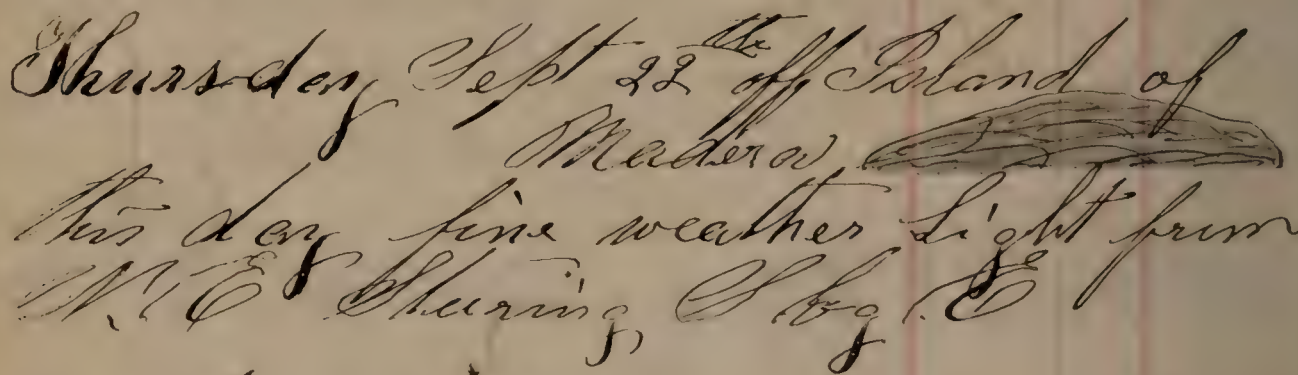 Thursday Sept 22th off Island of
Madera
this day fine weather Light from
N. E Sturing S by E